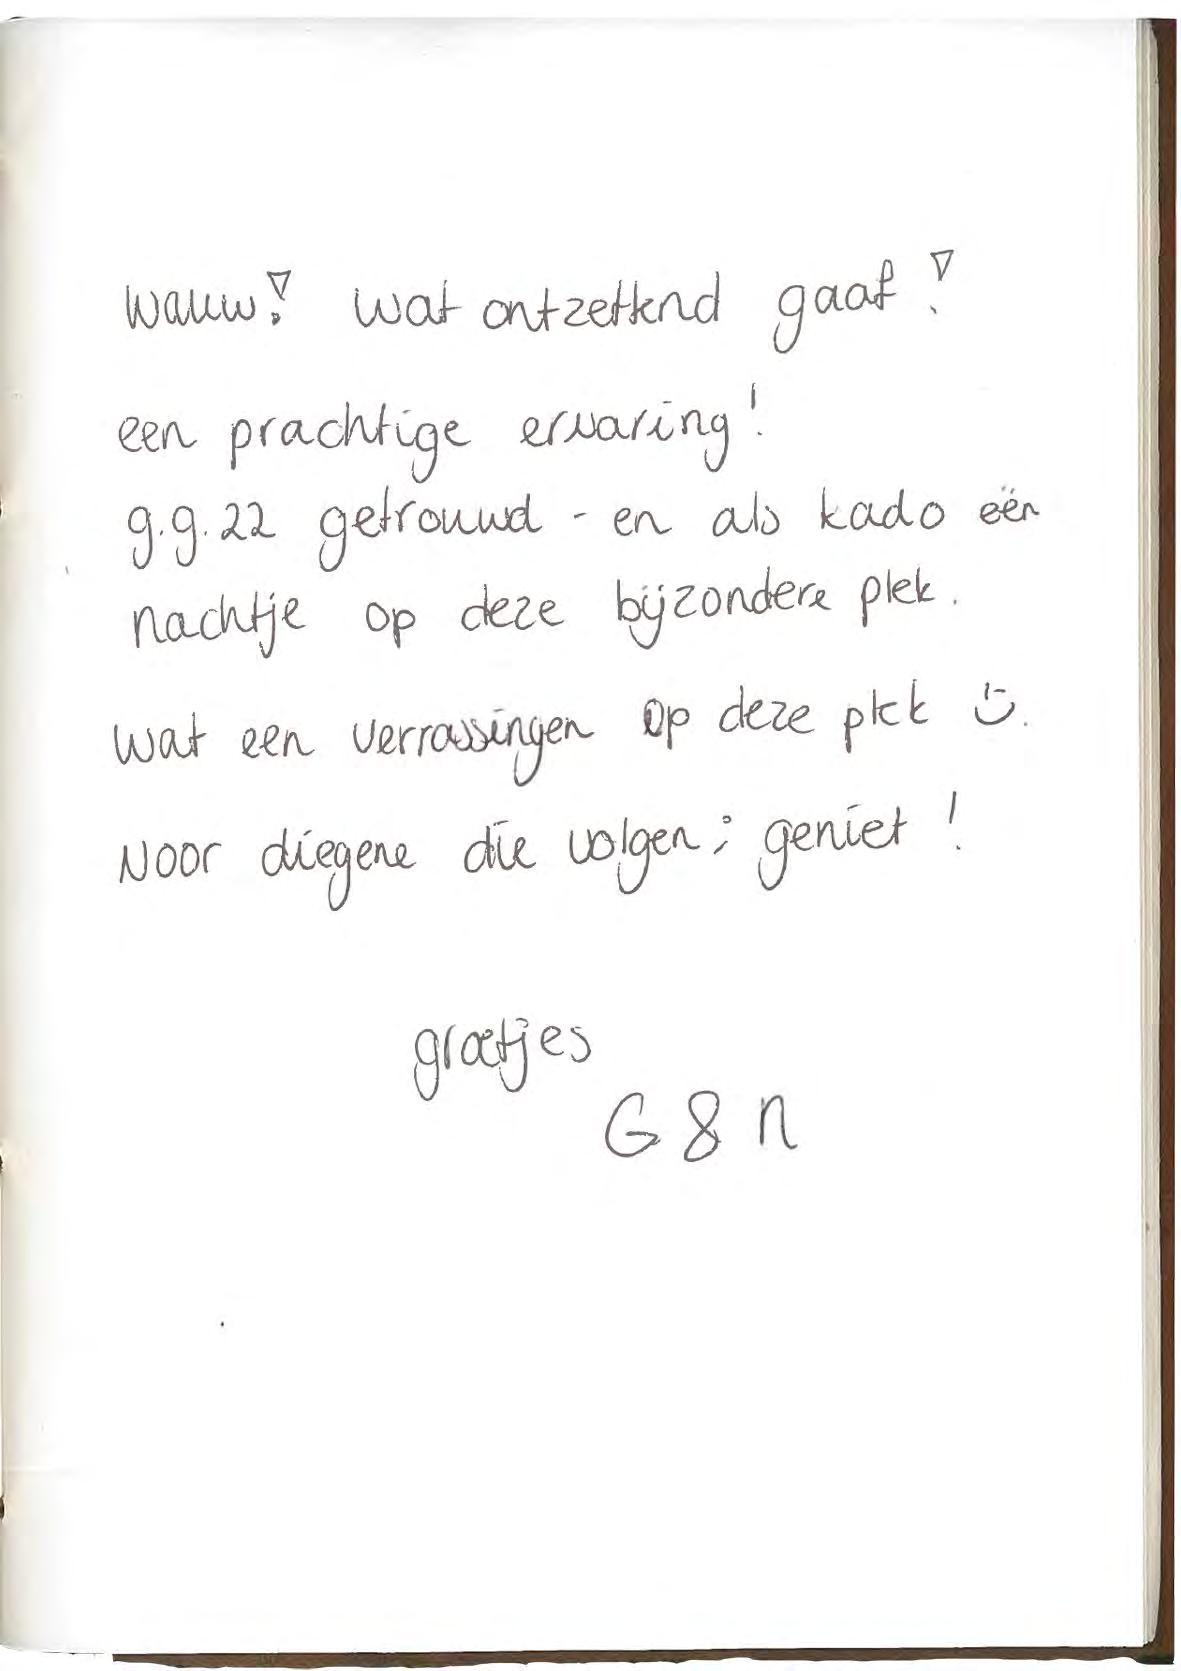 wauw! wat ontzettend gaaf!
een prachtige ervaring!
9.9.22 getrouwd - en als kado één
nachtje op deze bijzondere plek.
Wat een verrassingen op deze plek :).
Voor diegene die volgen; geniet!
groetjes
G & N